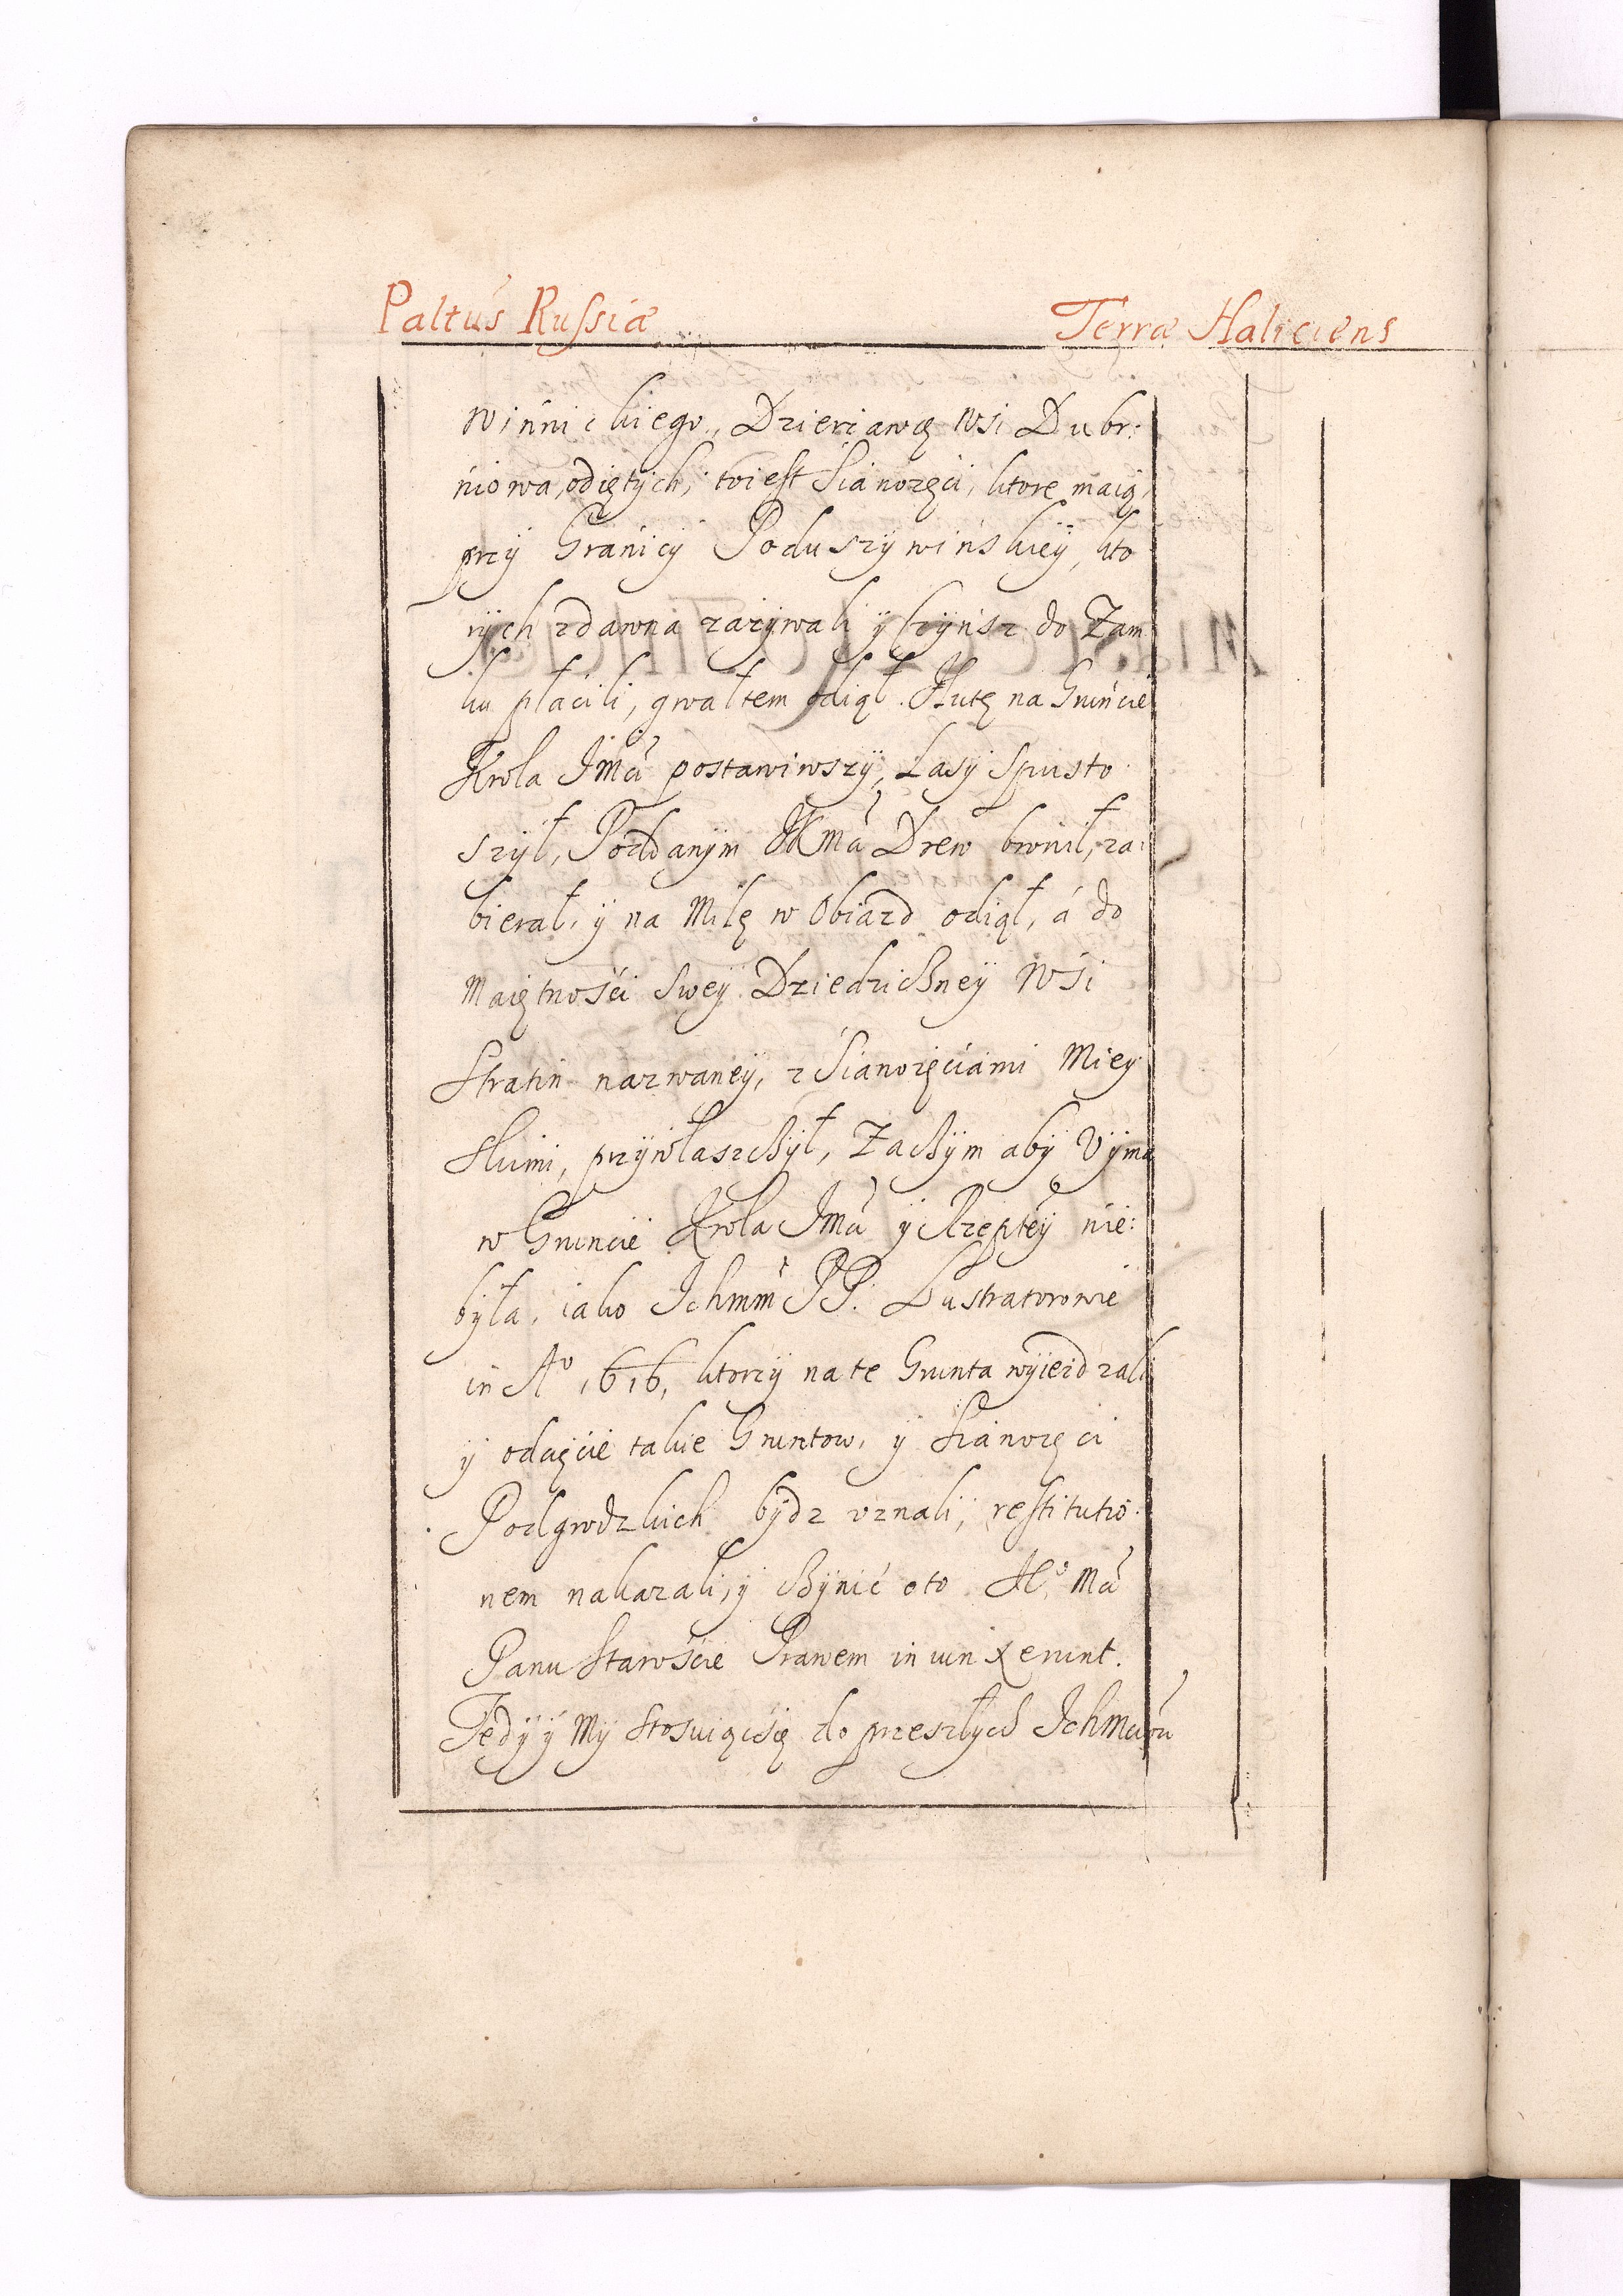 Paltus Russiæ Terræ Haliciens
Winnickiego, Dzierzawcę Wsi Dubr:
niowa, odiętych, toiest Sianozęci, ktore maią
przy Granicy Poduszywinskiey, kto
rych zdawna zazywali y Czynsz do Zam
ku płacili, gwałtem odiął. Hutę na Gruncie
Krola Jmći postawiwszy, Lasy Spusto
szył, Poddanym JKMći Drew bronił, za:
bierał, y na Milę w Obiazd odiął, á do
Maiętnośći Swey Dziedziczney Wśi
Stratin nazwaney, z Sianozęćiami Miey
skimi, przywłaszczył, Zaczym aby Vyma
w Gruncie Krola Jmći y Rzeptey nie:
była, iako Ichmm PP. Lustratorowie
in Aº 1616, ktorzy na te Grunta wyiezdzali
y odcięćie takie Gruntow, y Sianozęci
Podgrodzkich bydz vznali, restitutio:
nem nakazali, y czynić oto Jeº Mći
Panu Starośćie Prawem iniunxerunt.
Tedy y My Stosuiącsię do przeszłych Ichmciow